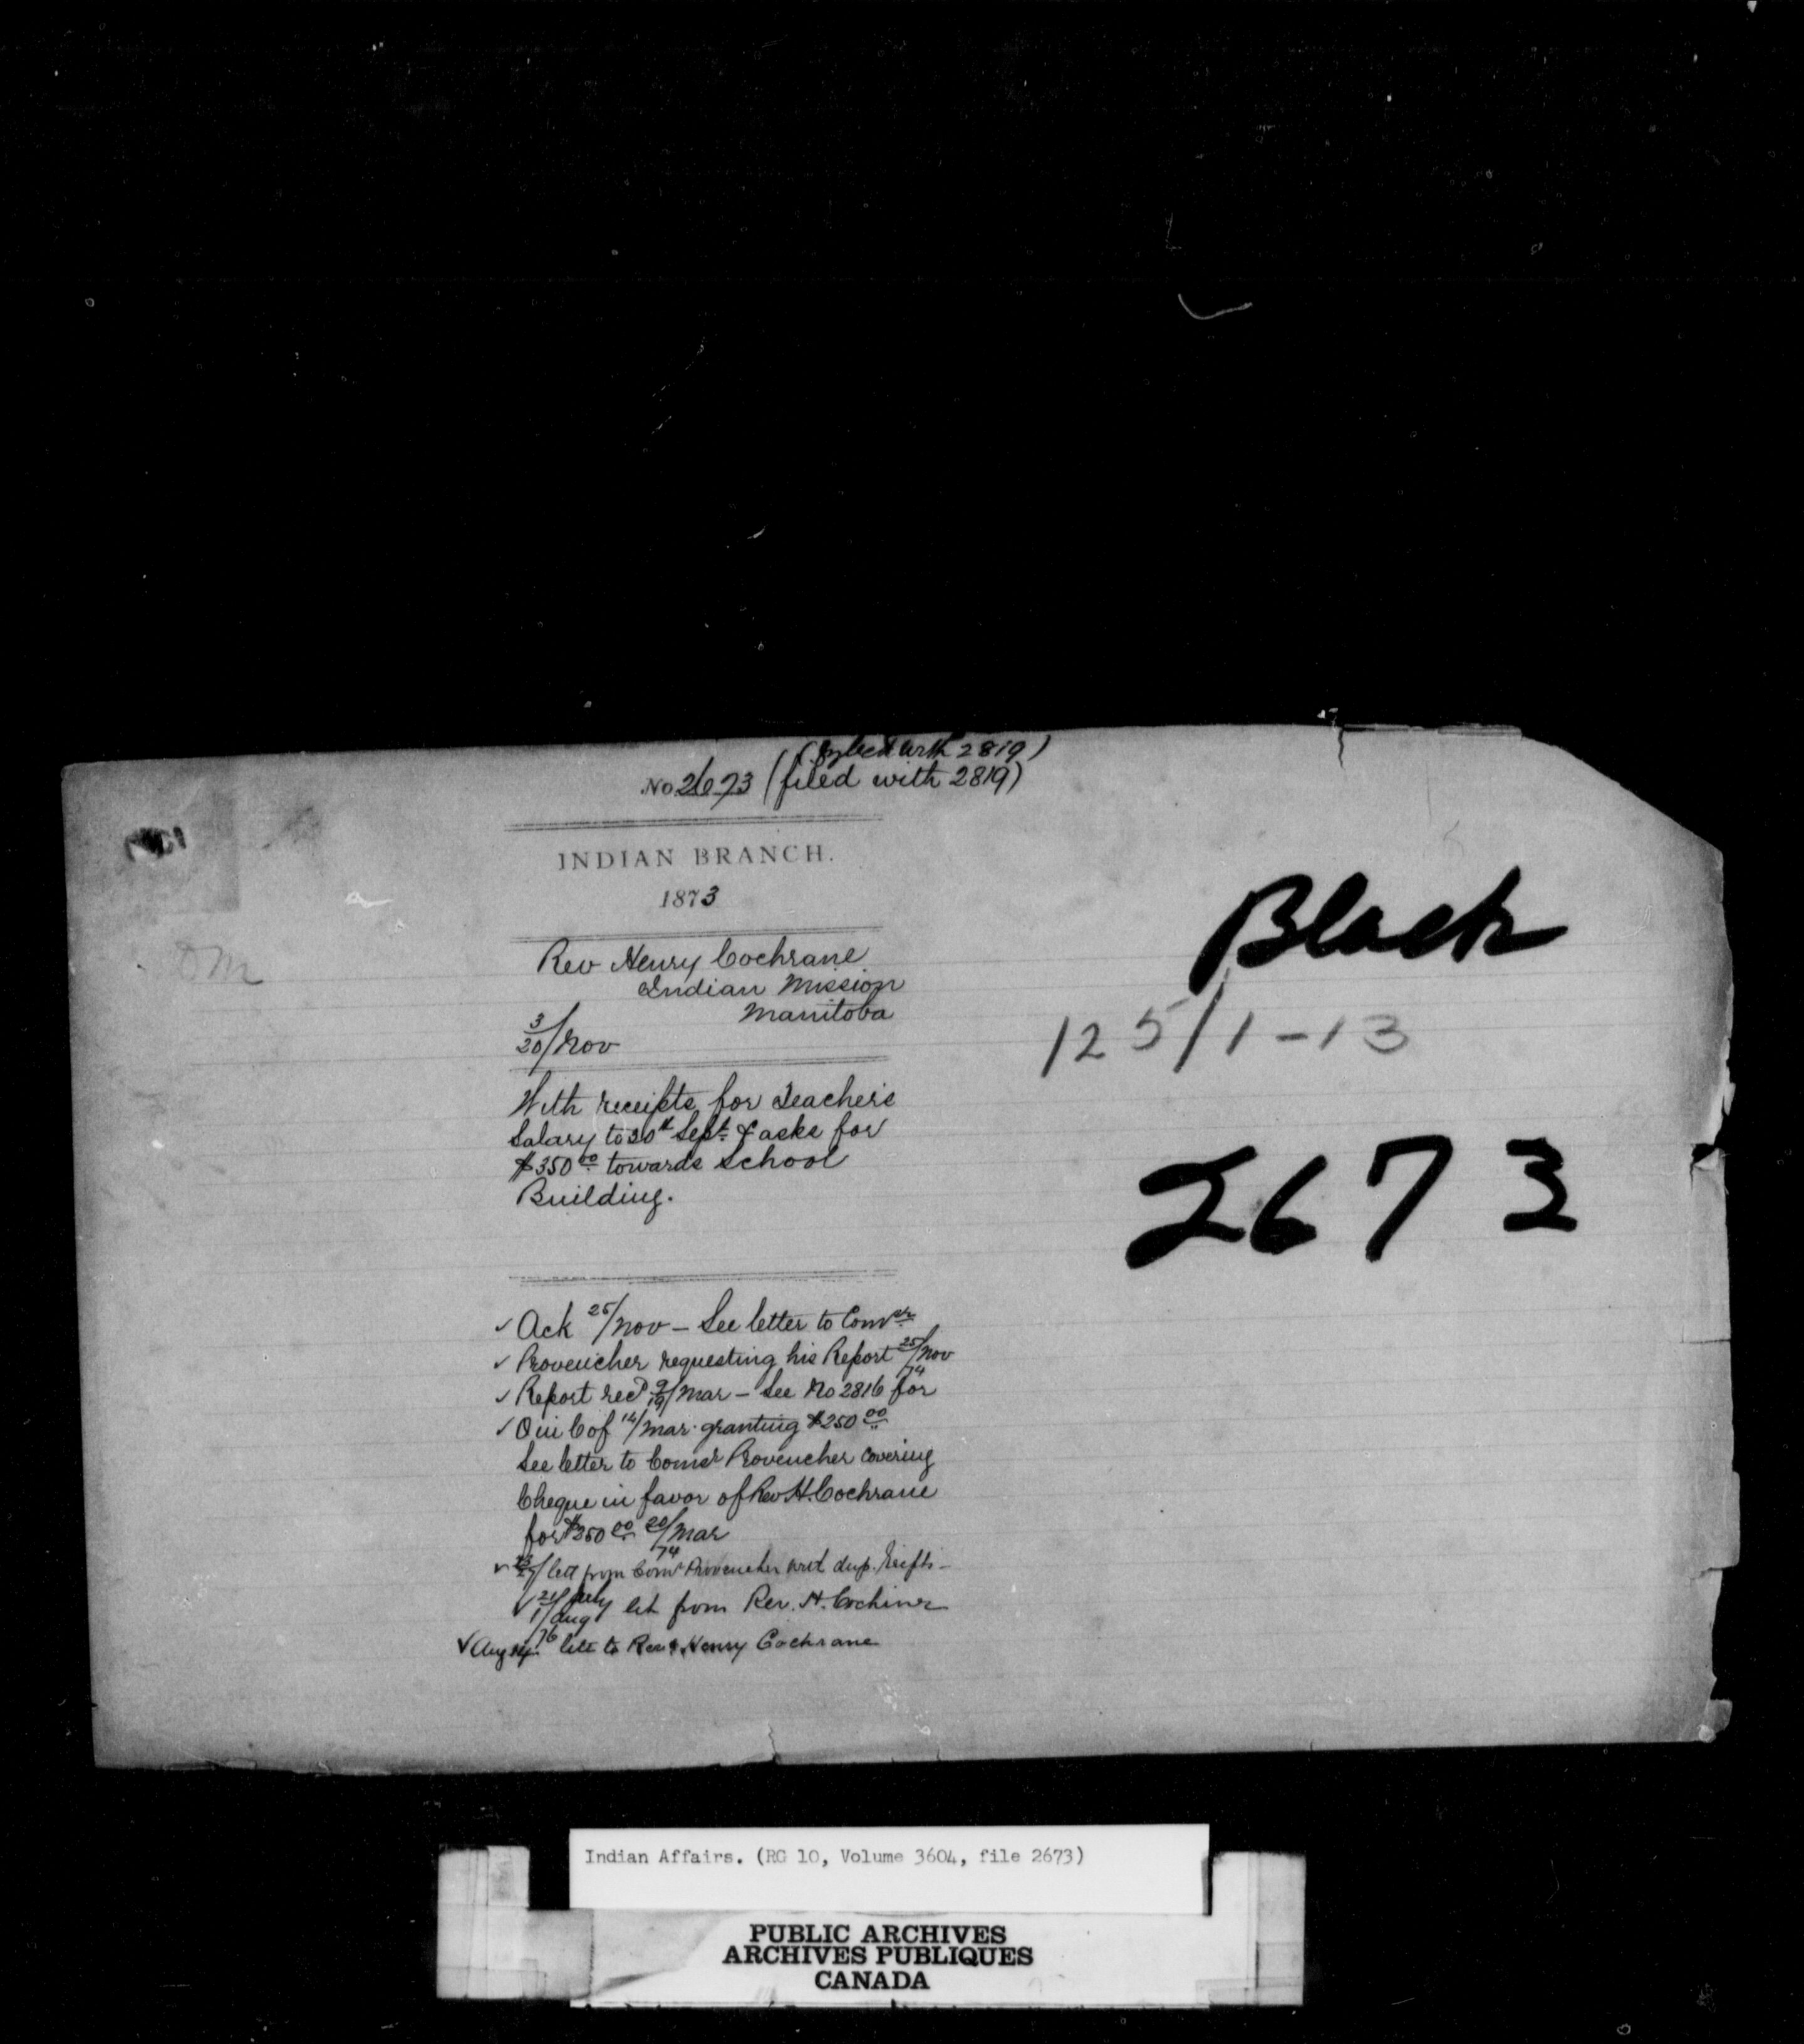 (filed with 2819)
No 2673 (filed with 2819)
INDIAN BRANCH.
1873
Rev Henry Cochrane
Indian Mission
Manitoba
3/20/Nov
With receipts for Teacher's
Salary to 30th Sept. & asks for
$350.00 towards School
Building.
✓ Ack 25/Nov – See letter to Comr
✓ Provencher requesting his Report 25/Nov
✓ Report recd 9/19/Mar – See No 2816 for 74
✓ O in C of 14/Mar. granting $250.00
See letter to Comsr Provencher covering
Cheque in favor of Rev H. Cochrane
for $250.00 20/Mar
74
✓ lett from Comr Provencher dup.
✓ 21/July let from Rev. H.
1/Aug
76
✓ Aug 14. lett to Revd Henry Cochrane
Black
125/1-13
2673
Indian Affairs. (RG 10, Volume 3604, file 2673)
PUBLIC ARCHIVES
ARCHIVES PUBLIQUES
CANADA